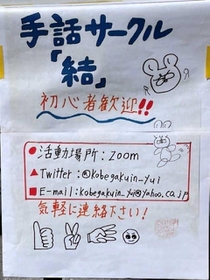 手話サークル
「結」
初心者歓迎!!
● 活動場所：zoom
▲ Twitter：@kobegakuin_yui
■ E-mail：kobegakuin_yui@yahoo.co.jp
気軽に連絡下さい！